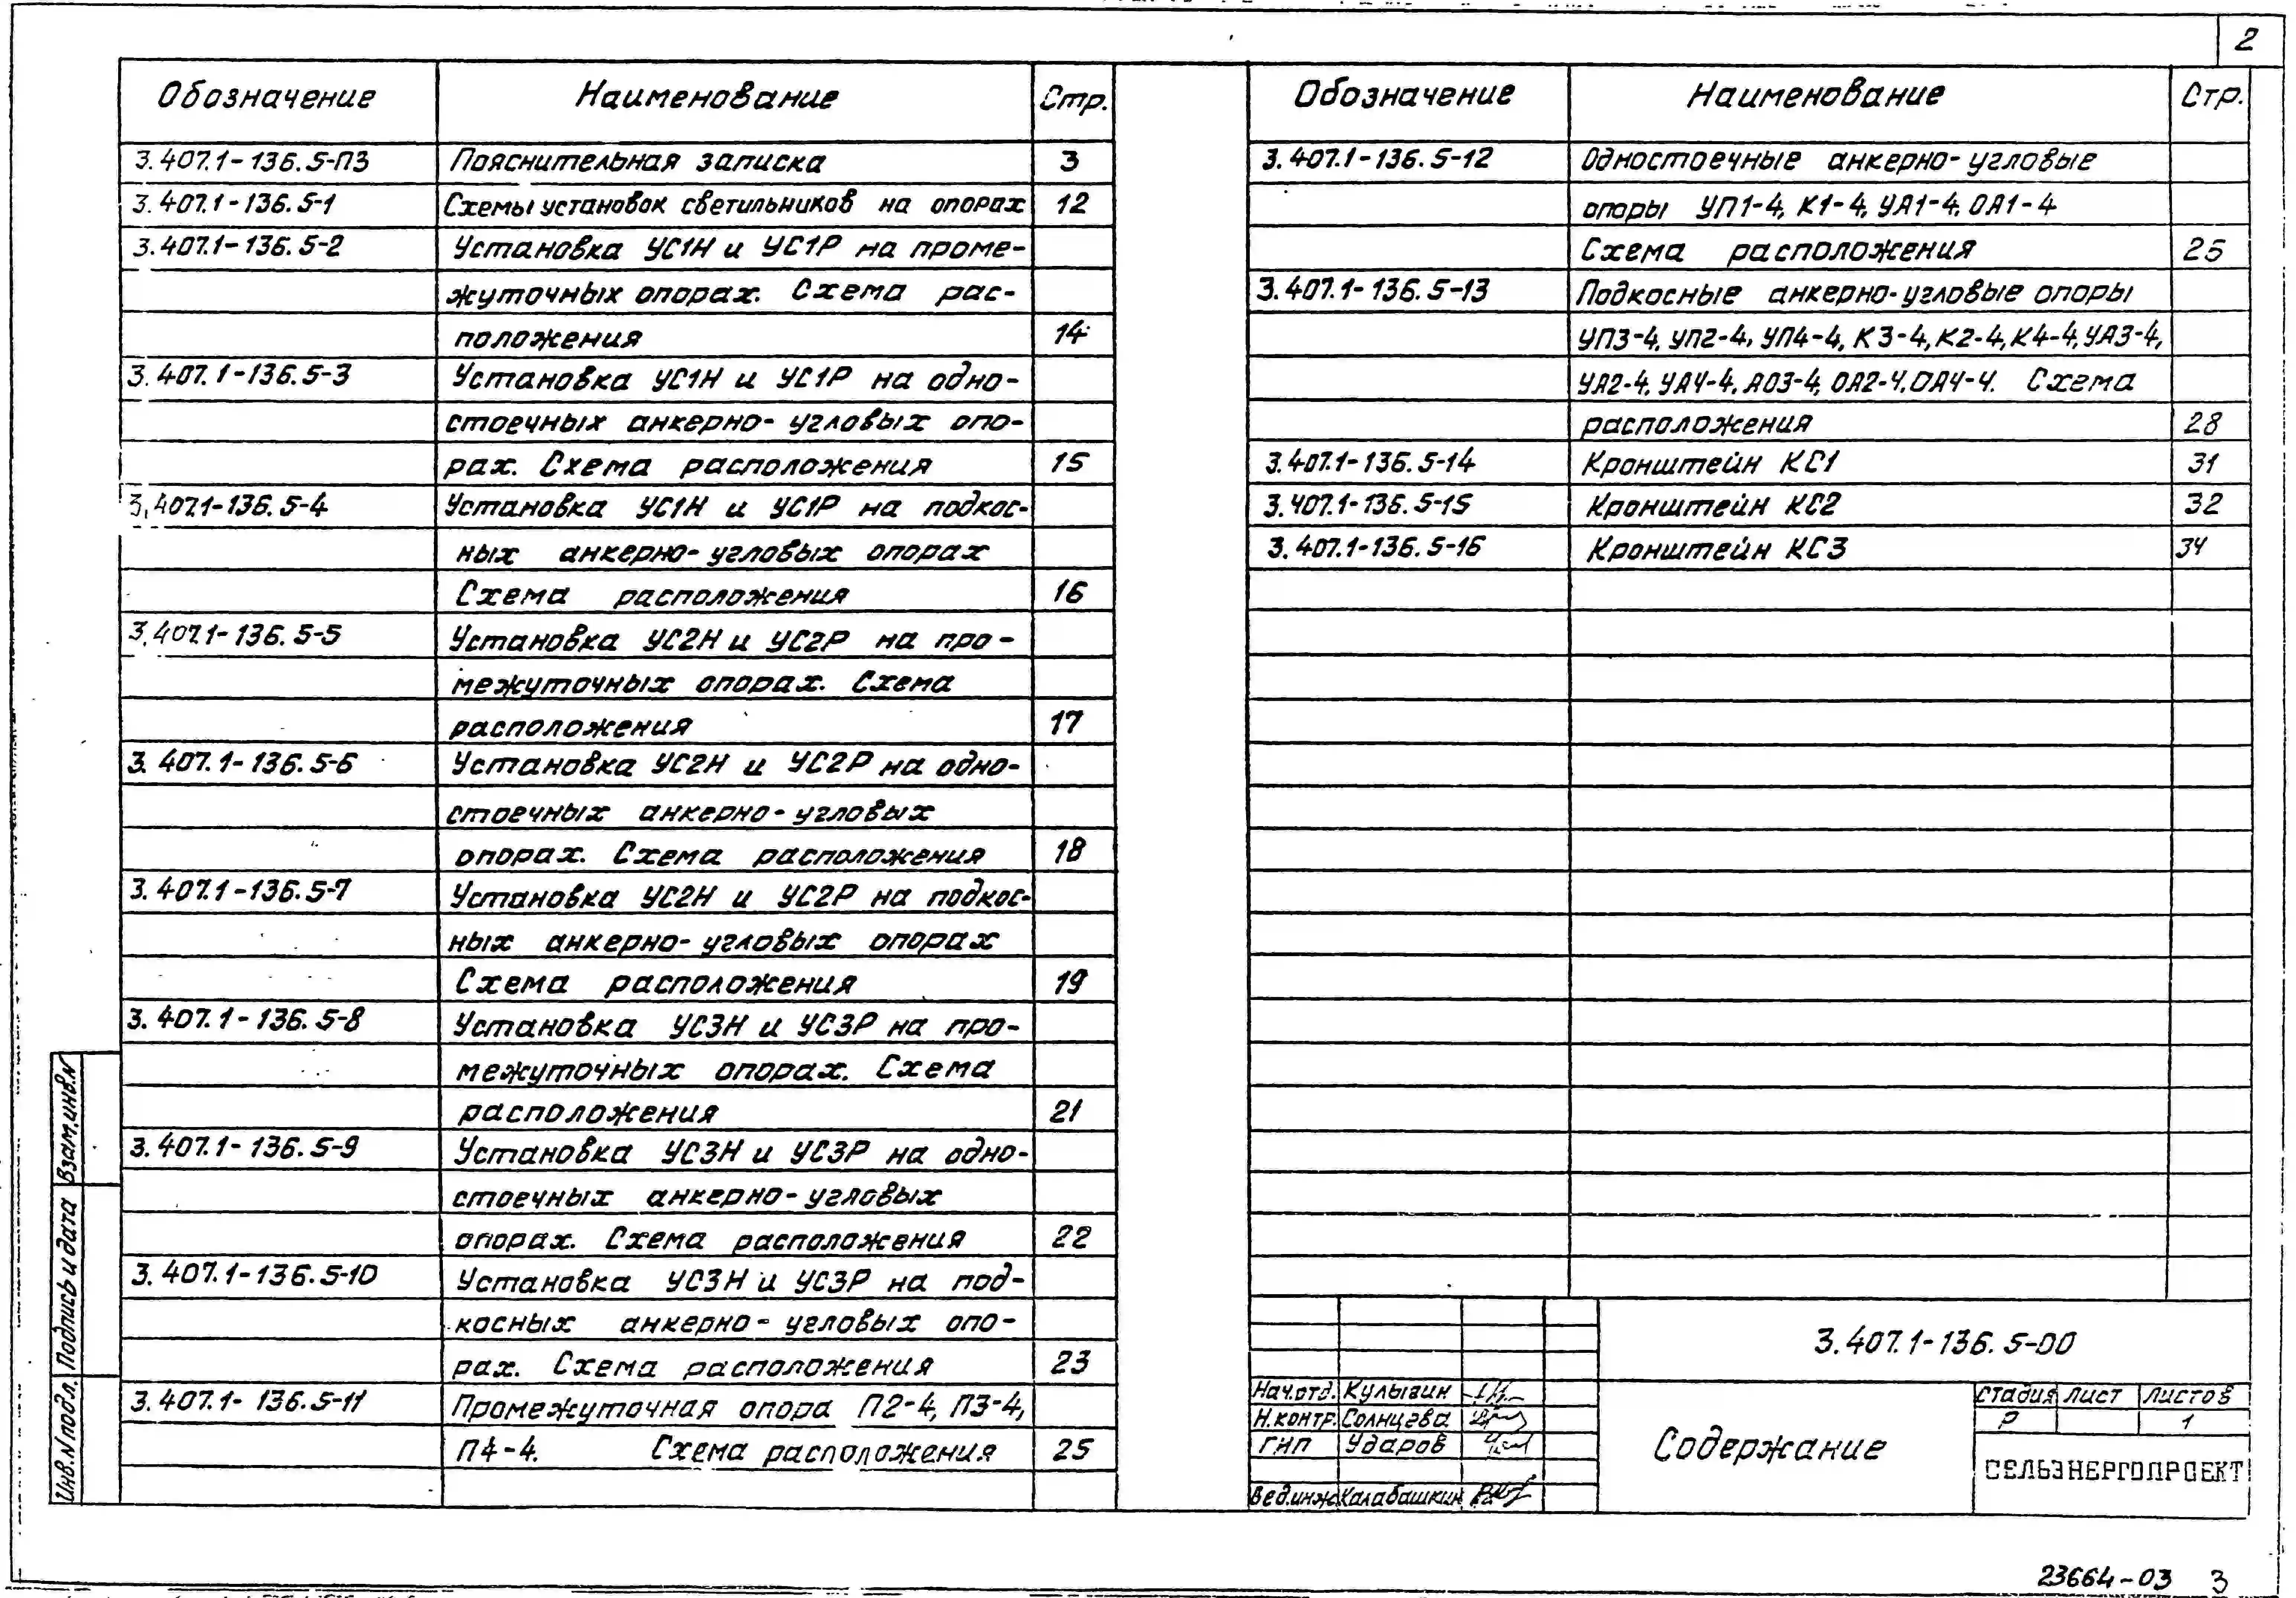 2
Обозначение Наименование Стр.
3.407.1-136.5-ПЗ Пояснительная записка 3
3.407.1-136.5-1 Схемы установок светильников на опорах 12
3.407.1-136.5-2 Установка УС1Н и УС1Р на проме-
жуточных опорах. Схема рас-
положения 14
3.407.1-136.5-3 Установка УС1Н и УС1Р на одно-
стоечных анкерно-угловых опо-
рах. Схема расположения 15
3.407.1-136.5-4 Установка УС1Н и УС1Р на подкос-
ных анкерно-угловых опорах
Схема расположения 16
3.407.1-136.5-5 Установка УС2Н и УС2Р на про-
межуточных опорах. Схема
расположения 17
3.407.1-136.5-6 Установка УС2Н и УС2Р на одно-
стоечных анкерно-угловых
опорах. Схема расположения 18
3.407.1-136.5-7 Установка УС2Н и УС2Р на подкос-
ных анкерно-угловых опорах
Схема расположения 19
3.407.1-136.5-8 Установка УС3Н и УС3Р на про-
межуточных опорах. Схема
расположения 21
3.407.1-136.5-9 Установка УС3Н и УС3Р на одно-
стоечных анкерно-угловых
опорах. Схема расположения 22
3.407.1-136.5-10 Установка УС3Н и УС3Р на под-
косных анкерно-угловых опо-
рах. Схема расположения 23
3.407.1-136.5-11 Промежуточная опора П2-4, П3-4,
П4-4. Схема расположения 25
Обозначение Наименование Стр.
3.407.1-136.5-12 Одностоечные анкерно-угловые
опоры УП1-4, К1-4, УА1-4, ОА1-4
Схема расположения 25
3.407.1-136.5-13 Подкосные анкерно-угловые опоры
УП3-4, УП2-4, УП4-4, К3-4, К2-4, К4-4, УА3-4,
УА2-4, УА4-4, АО3-4, ОА2-4, ОА4-4. Схема
расположения 28
3.407.1-136.5-14 Кронштейн КС1 31
3.407.1-136.5-15 Кронштейн КС2 32
3.407.1-136.5-16 Кронштейн КС3 34
3.407.1-136.5-00
Нач.отд. Кулыгин
Н.контр. Солнцева
ГИП Ударов
Вед.инж. Калабашкин
Содержание
Стадия Лист Листов
Р 1
СЕЛЬЭНЕРГОПРОЕКТ
Взам.инв.N
Подпись и дата
Инв.N подл.
23664-03 3